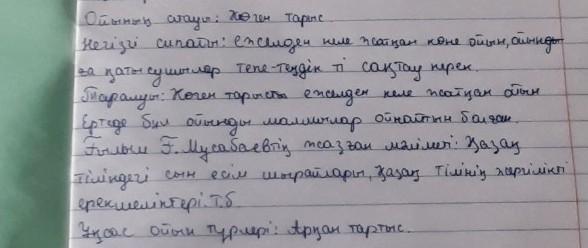 Ойының атауы: Көген тарыс.
Негізгі сипаты: ежелден келе жатқан көне ойын, ойынды
ға қатысушылар тепе-теңдік ті сақтау керек.
Таралуы: Көген тарысты ежелден келе жатқан ойын
Ертеде бұл ойынды малшылар ойнайтын болған.
Ғылым Ғ. Мұсабаевтің жазған мәлімеі: Қазақ
тіліндегі сын есім шырайлары, Қазақ тілінің көркімінгі
ерекшеліктері. Т.б
Ұқсас ойын түрлері: Арқан тартыс.